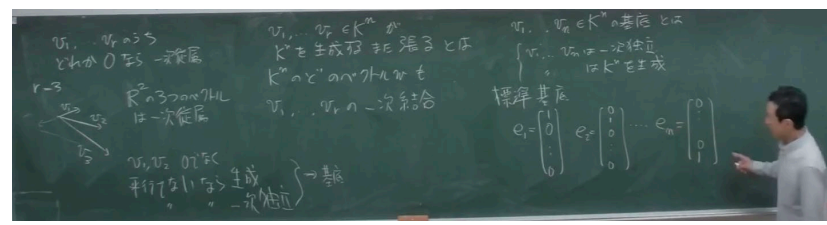 v₁, … vᵣ のうち
どれか 0 なら 一次従属
r=3
v₁
v₂
v₃
R²の3つのベクトル
は一次従属
v₁, v₂ 0でなく
平行でないなら 生成
〃 〃 一次独立
→ 基底
v₁, … vᵣ ∈ Kⁿ が
Kⁿを生成する または 張る とは
Kⁿのどのベクトルvも
v₁, … vᵣ の一次結合
v₁, … vₙ ∈ Kⁿ の基底とは
v₁ … vₙ は一次独立
〃 はKⁿを生成
標準基底
e₁ = [1 0 ⋮ 0] e₂ = [0 1 0 ⋮ 0] … eₙ = [0 ⋮ 0 1]